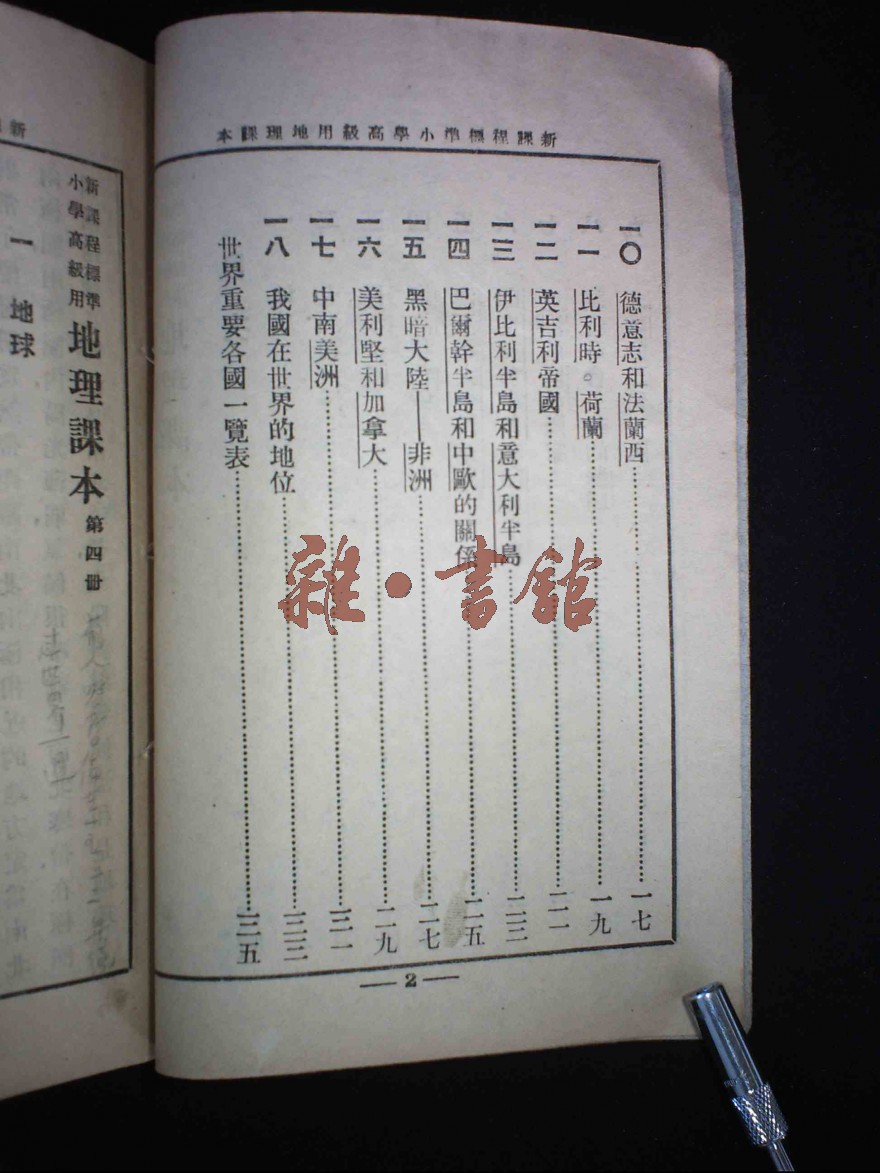 新課程標準小學高級用地理課本
一〇　德意志和法蘭西……一七
一一　比利時。荷蘭……一九
一二　英吉利帝國……二一
一三　伊比利半島和意大利半島……二三
一四　巴爾幹半島和中歐的關係……二五
一五　黑暗大陸——非洲……二七
一六　美利堅和加拿大……二九
一七　中南美洲……三一
一八　我國在世界的地位……三三
世界重要各國一覽表……三五
—2—
雜·書館
新課程標準
小學高級用
地理課本 第四册
一　地球